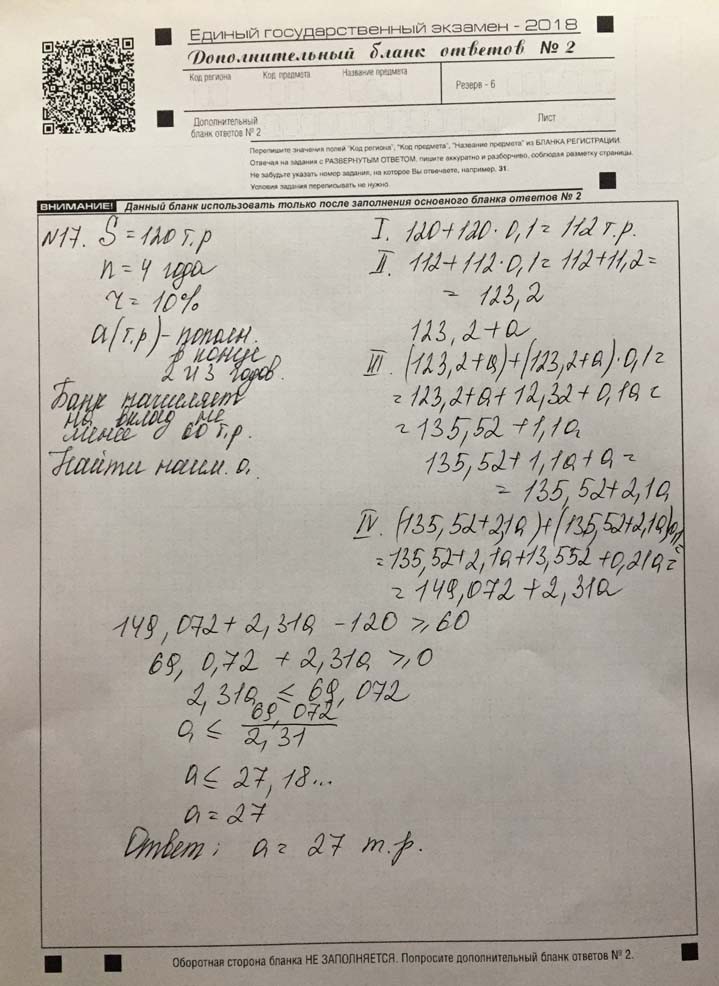 Единый государственный экзамен - 2018
Дополнительный бланк ответов № 2
Код региона Код предмета Название предмета
Резерв - 6
Дополнительный
бланк ответов № 2
Лист
Перепишите значения полей "Код региона", "Код предмета", "Название предмета" из БЛАНКА РЕГИСТРАЦИИ.
Отвечая на задания с РАЗВЕРНУТЫМ ОТВЕТОМ, пишите аккуратно и разборчиво, соблюдая разметку страницы.
Не забудьте указать номер задания, на которое Вы отвечаете, например, 31.
Условия задания переписывать не нужно.
ВНИМАНИЕ! Данный бланк использовать только после заполнения основного бланка ответов № 2
N17. S = 120 т.р
n = 4 года
r = 10%
a(т.р) - пополн.
в конце
2 и 3 годов.
Банк начисляет
на вклад не
менее 60 т.р.
Найти наим. a.
I. 120+120·0,1= 112 т.р.
II. 112+112·0,1= 112+11,2=
= 123,2
123,2+a
III. (123,2+a)+(123,2+a)·0,1=
= 123,2+a+12,32+0,1a=
= 135,52+1,1a
135,52+1,1a+a=
= 135,52+2,1a
IV. (135,52+2,1a)+(135,52+2,1a)0,1=
= 135,52+2,1a+13,552+0,21a=
= 149,072+2,31a
149,072+2,31a-120 ⩾ 60
69,0,72+2,31a ⩾ 0
2,31a ≤ 69,072
a ≤ 69,072/2,31
a ≤ 27,18...
a = 27
Ответ: a = 27 т.р.
Оборотная сторона бланка НЕ ЗАПОЛНЯЕТСЯ. Попросите дополнительный бланк ответов № 2.